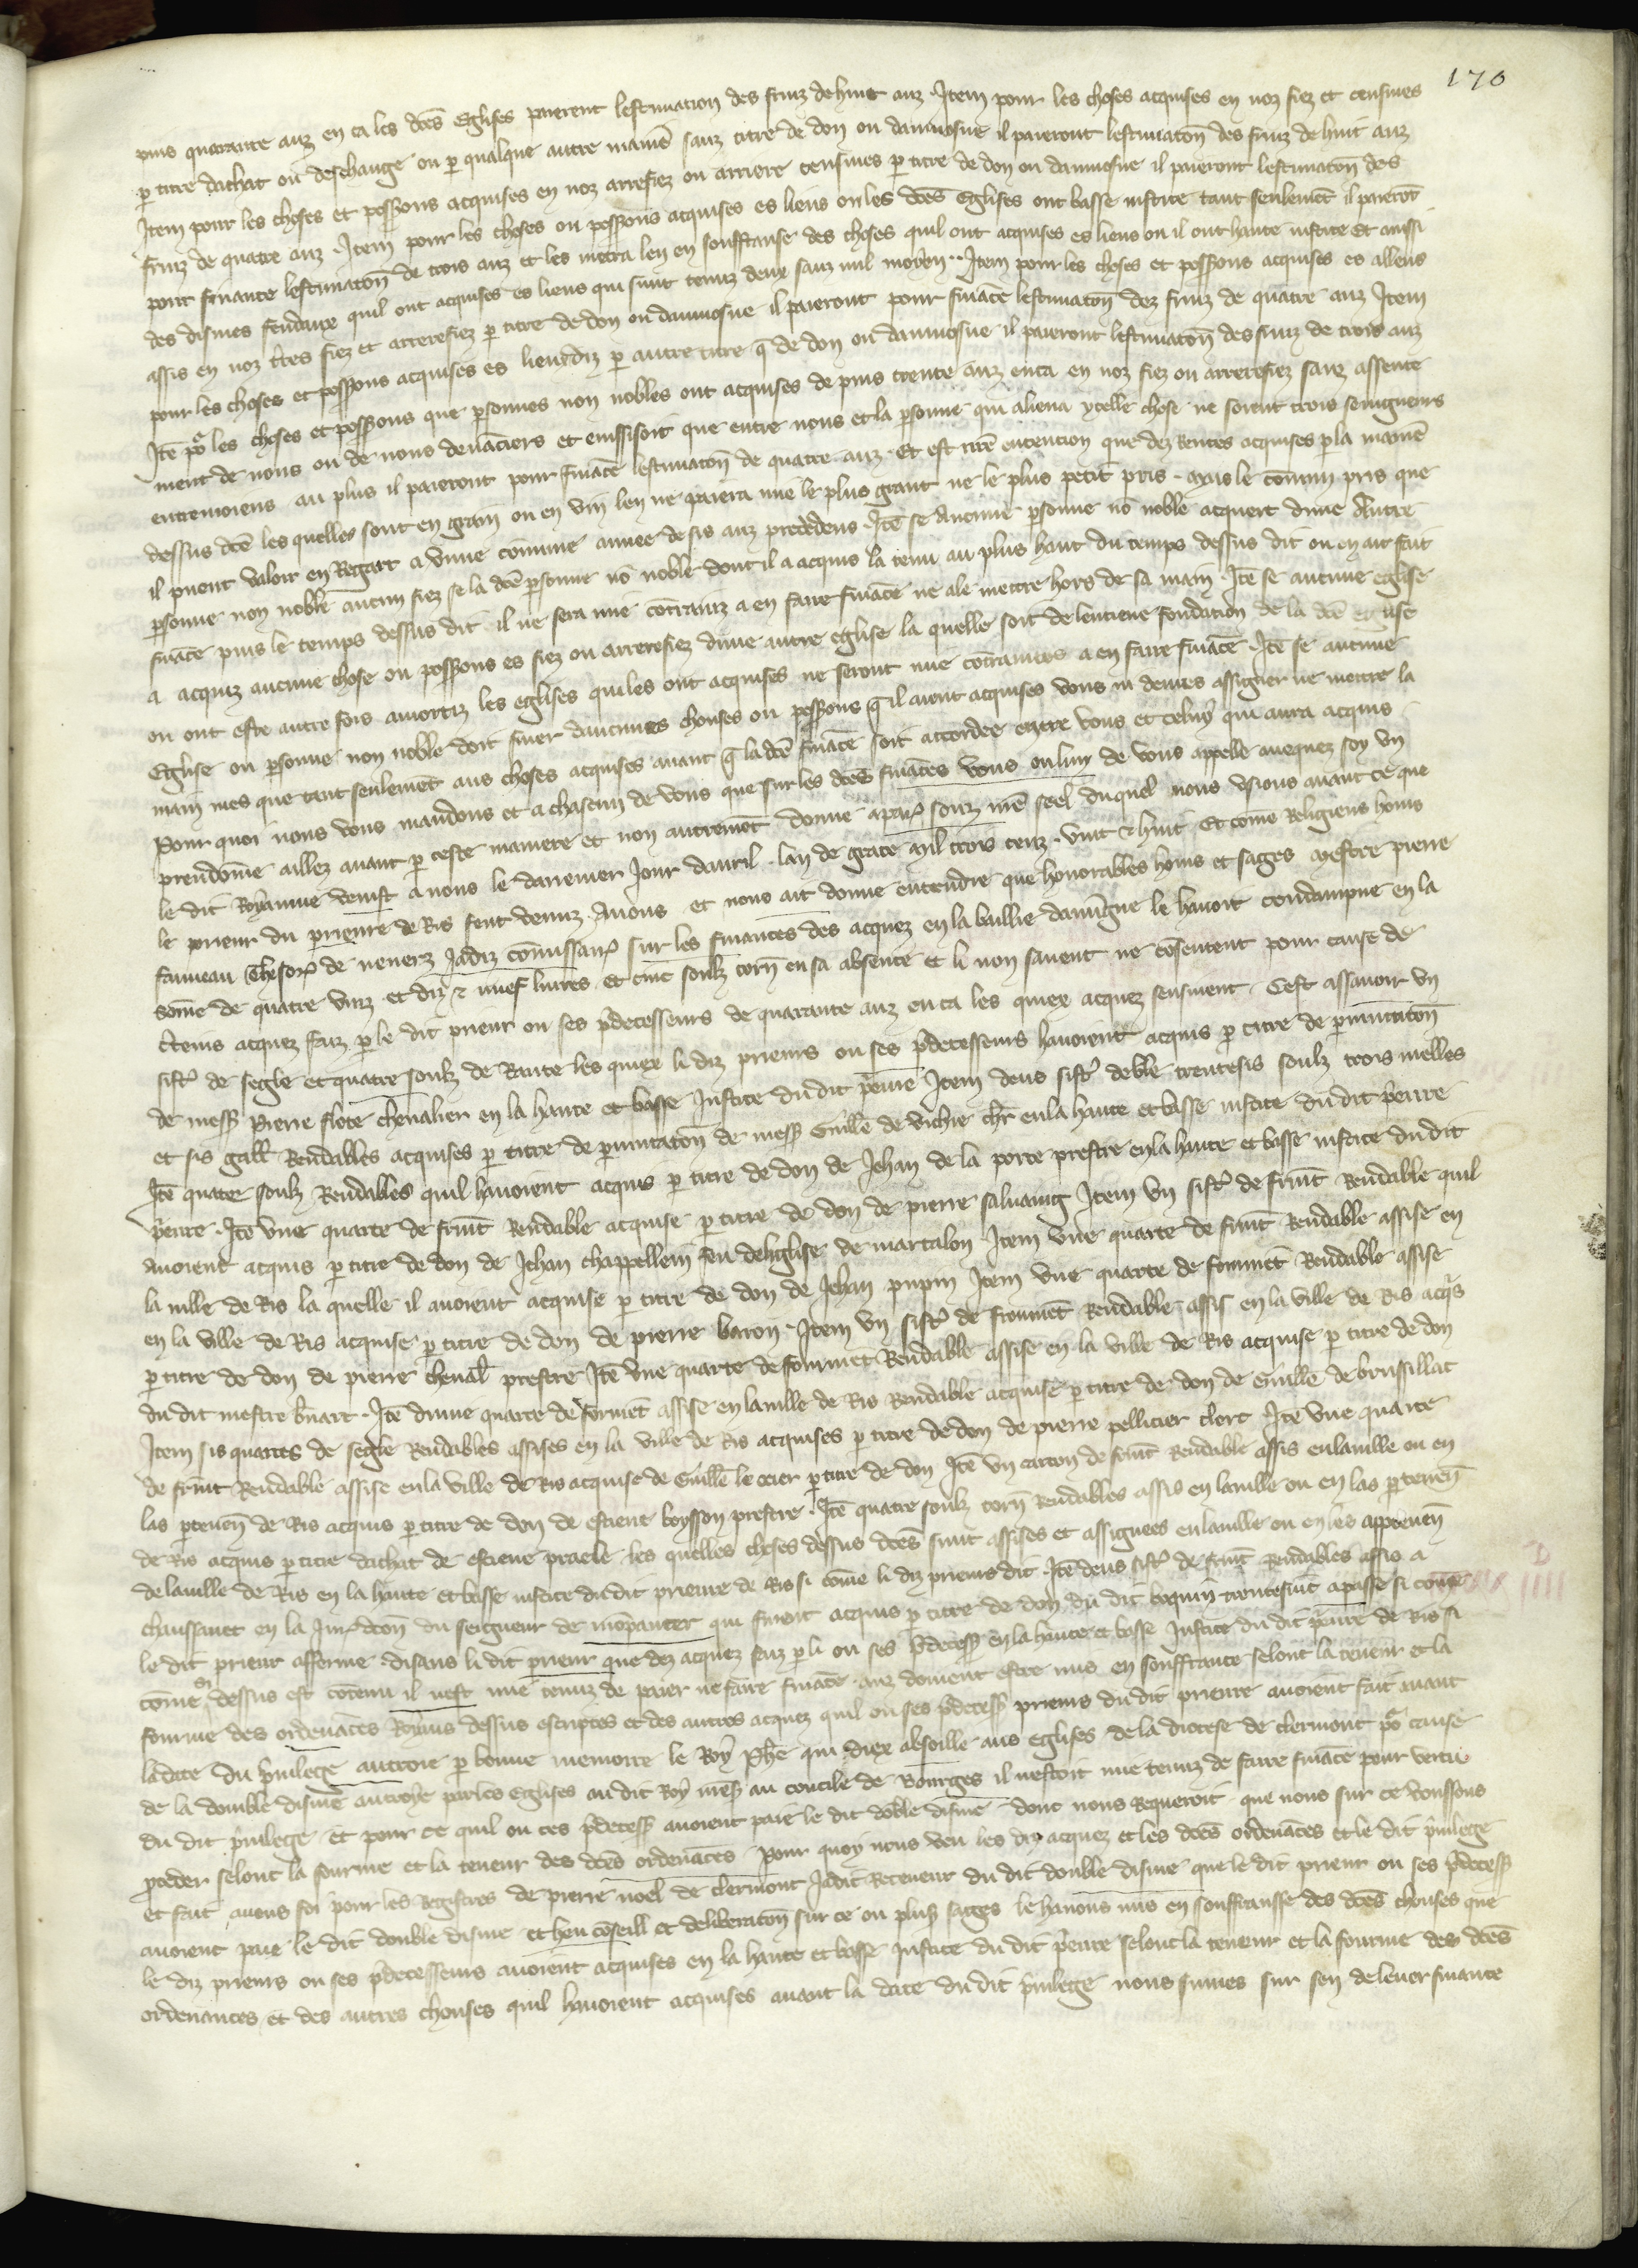 170
puis quarante anz en ca les dces Eglises paierent lestimacion des fruiz de huit anz. Item pour les choses acquises en noz fiez et censives
p titre dachat ou deschange ou p qualque autre manie sanz titre de don ou daumosne il paieront lestimaton des fruiz de huit anz
Item pour les choses et possions acquises en noz arrefiez ou arriere censives p titre de don ou daumosne il paieront lestimaton des
fruiz de quatre anz. Item pour les choses ou possions acquises es lieus ou les dces Eglises ont basse justice tant seulemet il paierot
pour finance lestimaton de trois anz et les metra len en souffranse des choses quil ont acquises es lieus ou il ont haute justice Et aussi
des dismes feudaux quil ont acquises es lieus qui sunt tenuz deux sanz nul moyen. Item pour les choses et possions acquises es alleus
assis en noz tres fiez et arrerefiez p titre de don ou daumosne il paieront pour finace lestimaton dez fruiz de quatre anz Item
pour les choses et possions acquises es lieux diz p autre titre q de don ou daumosne il paieront lestimaton des fruiz de trois anz
Ite por les choses et possions que psonnes non nobles ont acquises de puis trente anz enca en noz fiez ou arrerefiez sanz assente
ment de nous ou de nous devaciers et eussi soit que entre nous et la psonne qui aliena ycelle chose ne soient trois seingneurs
entremoiens au plus il paieront pour finace lestimaton de quatre anz. Et est nre entention que dez Rentes acquises p la manie
dessus dce les quelles sont en grain ou en vin len ne paiera mie le plus grant ne le plus petit pris. Mais le comun pris que
il puent valoir en Regart a une comune annee de sis anz precedens. Ite se Aucune psonne no noble acquert dune Autre
psonne non noble aucun fiez se la dce psonne no noble dont il a acquis la tenu au plus haut du temps dessus dit ou en ait fait
finace puis le temps dessus dit il ne sera mie contrainz a en faire finace ne ale mettre hors de sa main. Ite se aucune eglise
a acquiz aucune chose ou possions es fiez ou arrerefiez dune autre eglise la quelle soit de lentiene fondation de la dce eglise
ou ont este autre fois amortiz les eglises qui les ont acquises ne seront mie contraintes a en faire finace. Ite se aucune
Eglise ou psonne non noble doit finer daucunes chouses ou possions q il aient acquises vous ni devies assigner ne mettre la
main mes que tant seulemet aus choses acquises avant q la dce finace soit accordee entre vous et celuy qui aura acquis
Pour quoi nous vous mandons et a chascun de vous que sur les dces finaces vous ou lun de vous appelle avequez soy un
preudome aillez avant p ceste maniere et non autremet donne a paris souz nre seel duquel nous usions avant ce que
le dit Royaume venist a nous le darrenier Jour davril. lan de grace Mil trois cenz. vint & huit Et come Religieus homs
le prieur du prieure de Ris feut venuz Avons et nous ait donne entendre que honorables homs et sages Mestre pierre
fauveau Thesor de nevers Jadiz comissar sur les finances des acquez en la baillie dauvergne le havoit condampne en la
some de quatre vinz et diz & nuef livres et cinc soulz torn en sa absence et li non savent ne cosentent pour cause de
ctenis acquez faiz p le dit prieur ou ses pdecesseurs de quarante anz en ca les quiex acquez sensuient. Cest assavoir un
sist de segle et quatre soulz de Rante les quiex li diz prieurs ou ses pdecesseurs havoient acquis p titre de pmutaton
de mess pierre flote chevalier en la haute et basse Justice du dit prieure Item deus sist de ble trentesis soulz trois melles
et sis gall Rendables acquises p titre de pmutaton de mess Guille de vichie chr en la haute et basse justice du dit prieure
Ite quatre soulz Rendables quil havoient acquis p titre de don de Jehan de la porte prestre en la haute et basse justice du dit
prieure. Ite une quarte de frmt Rendable acquise p titre de don de pierre salvaing Item un sist de frmt Rendable quil
avoient acquis p titre de don de Jehan chappellein feu deleglise de martalon Item une quarte de frmt Rendable assise en
la ville de Ris la quelle il avoient acquise p titre de don de Jehan pupin Item une quarte de fromet Rendable assise
en la ville de Ris acquise p titre de don de pierre baron. Item un sist de fromet Rendable assis en la ville de Ris acqs
p titre de don de pierre cheval prestre Ite une quarte de fromet Rendable assise en la ville de Ris acquise p titre de don
du dit mestre bnart. Ite dune quarte de formet assise en la ville de Ris Rendable acquise p titre de don de Guille de brussillat
Item sis quartes de segle Rendables assises en la ville de Ris acquises p titre de don de pierre pellicier clerc Ite une quarte
de frmt Rendable assise en la ville de Ris acquise de Guille le ocier p titre de don Ite un carton de frmt Rendable assis en la ville ou en
las ptenen de Ris acquis p titre de don de estient boysson prestre. Ite quatre soulz torn Rendables assis en la ville ou en las ptenen
de Ris acquis p titre dachat de estiene praele les quelles choses dessus dces sunt assises et assignees en la ville ou en les apptenen
de la ville de Ris en la haute et basse justice du dit prieure de Ris si come li diz prieurs dit. Ite deus sist de frmt Rendables assis a
chaussanet en la Jur dcon du seigneur de mopanter qui furent acquis p titre de don du dit boquin trentesuit a passe si come
le dit prieur afferme disans li dit prieur que dez acquez faiz p li ou ses pdecess en la haute et basse Justice du dit prieure de Ris si
come dessus est cotenu il nest mie tenuz de paier ne faire finace anz doivent estre mis en souffrance selont la teneur et la
fourme des ordenaces Royaus dessus escriptes et des autres acquez quil ou ses pdecess prieurs du dit prieure avoient fait avant
la date du pvilege auctroie p bonne memoire le Roy Phe qui diex absoille aus Eglises de la diocese de clermont por cause
de la double disme autroye par les Eglises au dit Roy mess au concile de Bourges il nestoit mie tenuz de faire finace pour vertu
du dit pvilege et pour ce quil ou ces pdecess avoient paie le dit doble disme dont nous Requeroit que nous sur ce voussons
pceder selont la fourme et la teneur des dces ordenaces Pour quoy nous veu les diz acquez et les dces ordenaces et le dit pvilege
et fait avons foi pour les Registres de pierre noel de clermont Jadit Receveur du dit double disme que le dit prieur ou ses pdecess
avoient paie le dit double disme et heu coseill et deliberaton sur ce ou plus sages le havons mis en souffransse des dces chouses que
le diz prieurs ou ses pdecesseurs avoient acquises en la haute et basse Justice du dit prieure selont la teneur et la fourme des dces
ordenances et des autres chouses quil havoient acquises avant la date du dit pvilege nous sumes sur sen de lever finance